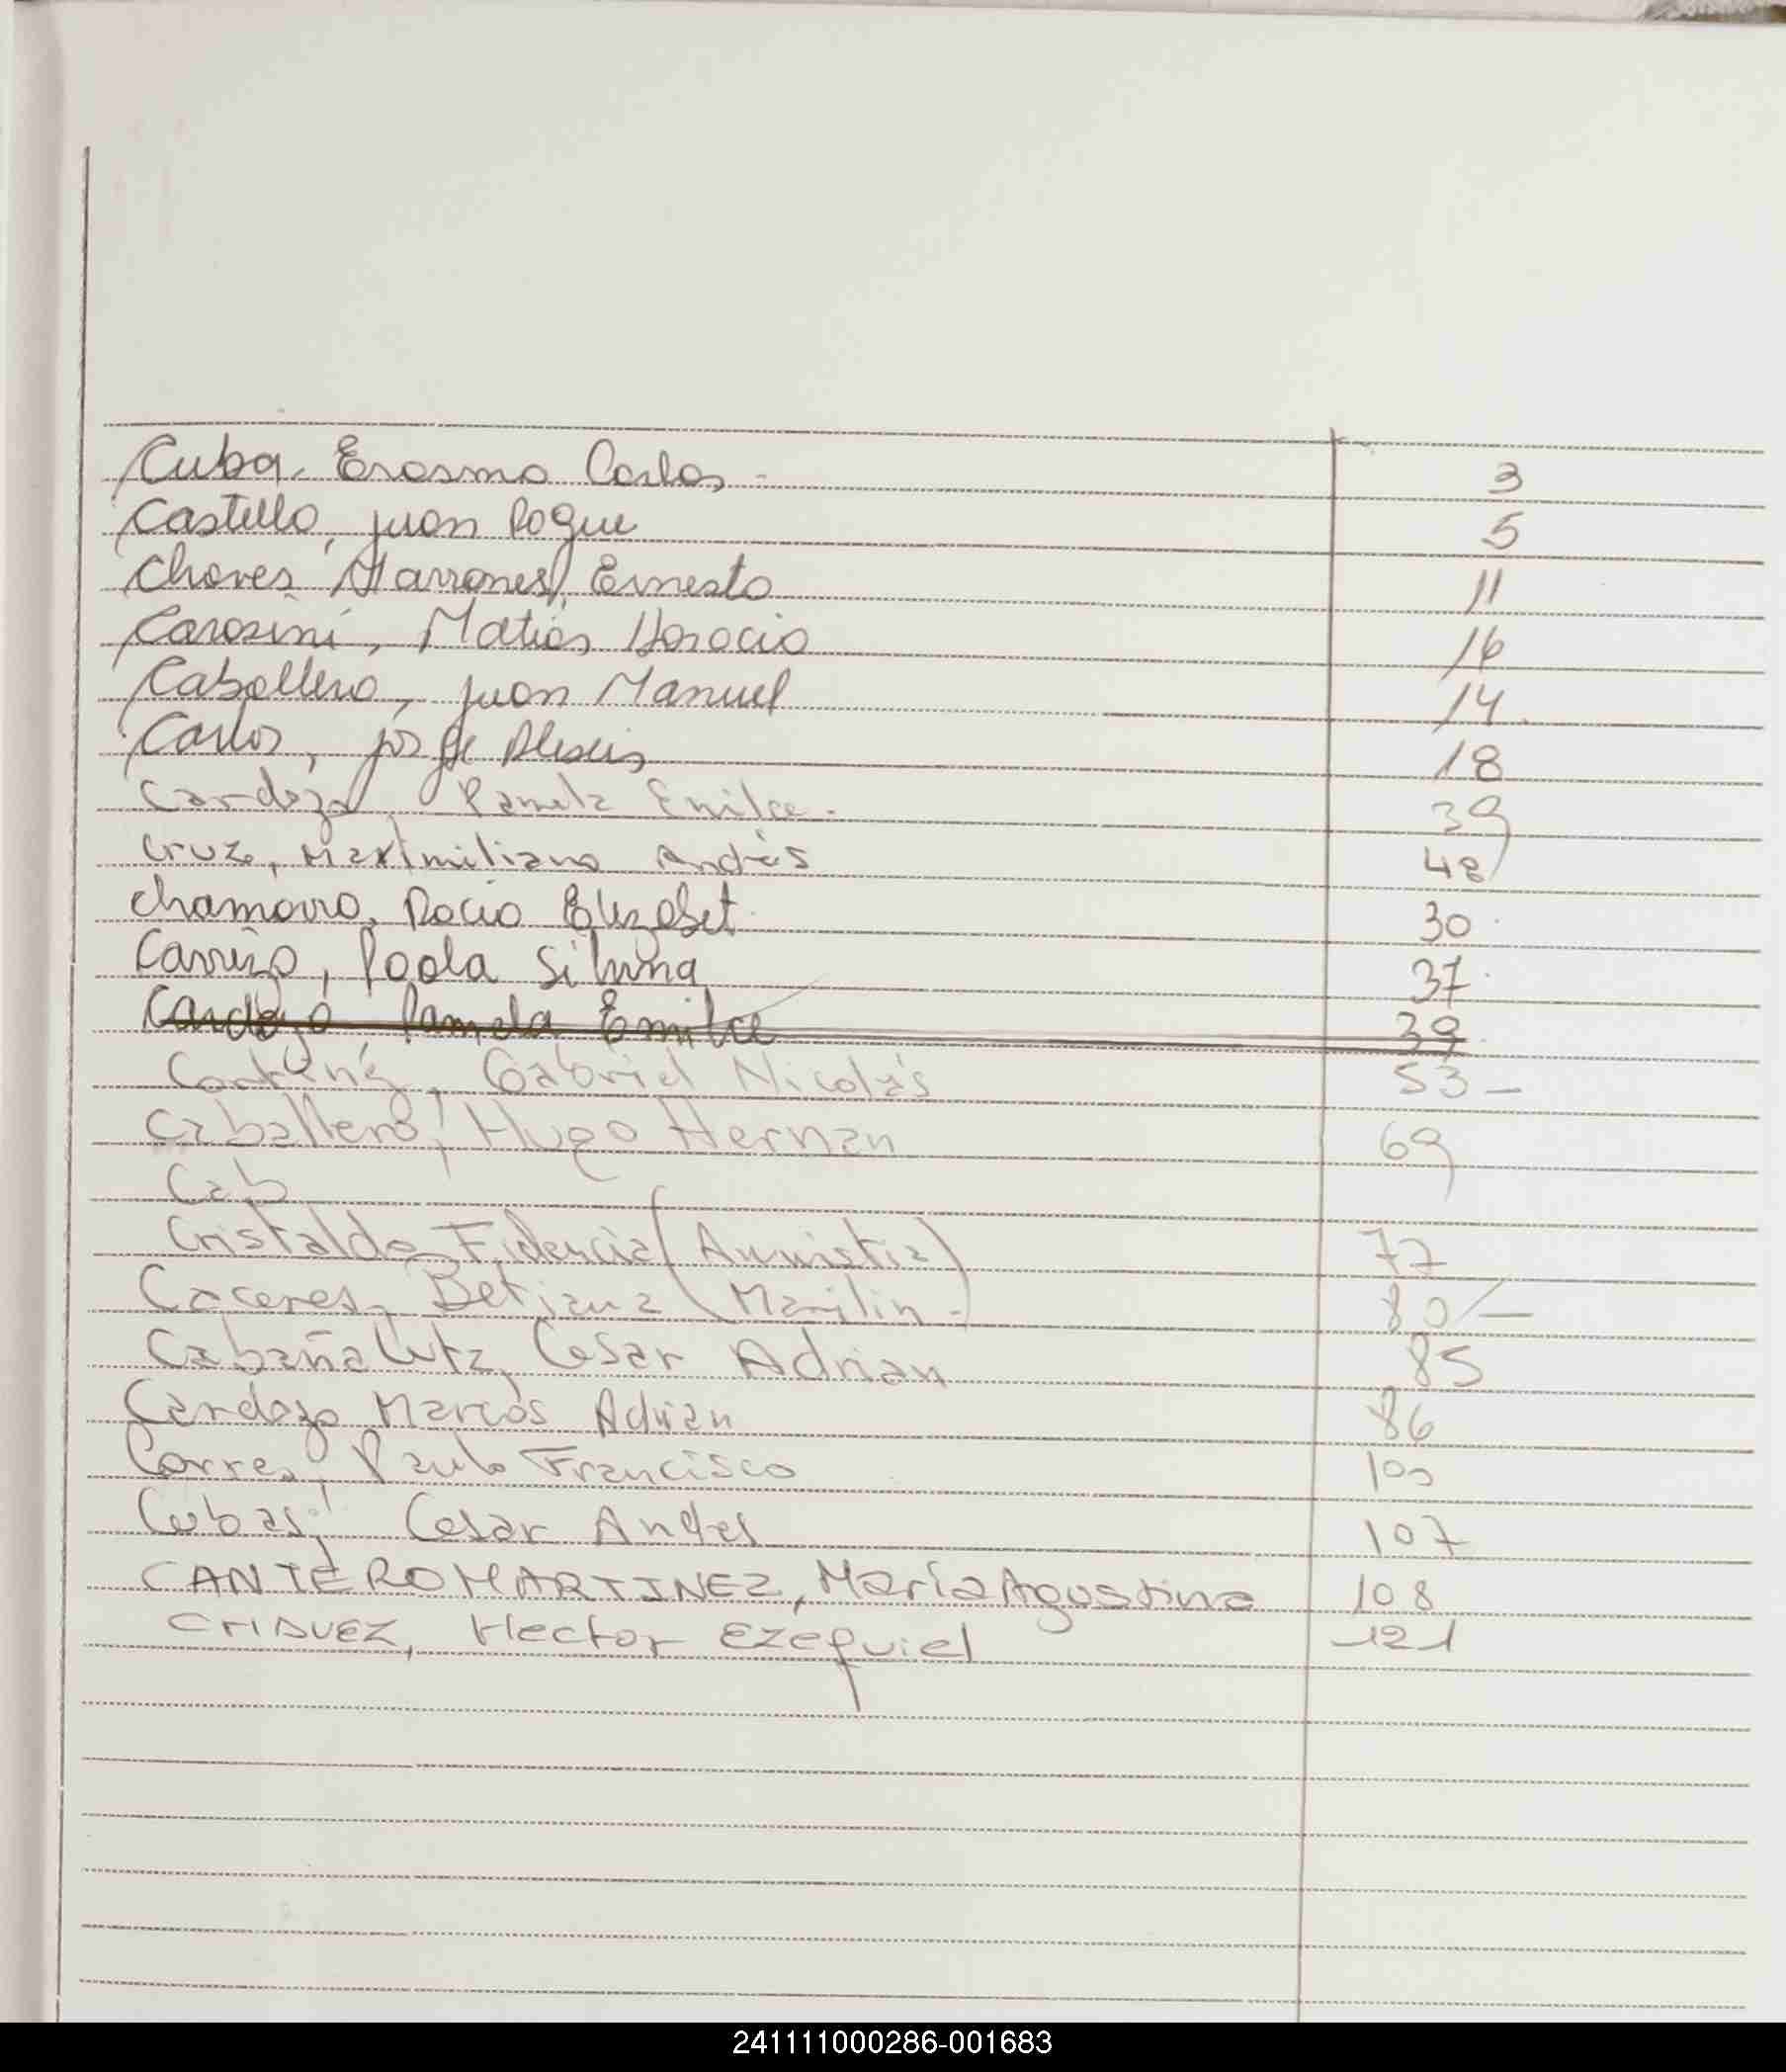 Cuba, Erasmo Carlos - 3
Castillo, Juan Roque 5
Chaves Marrones, Ernesto 11
Carosini, Matias Horacio 16
Caballero, Juan Manuel 14
Carlos, Jorge Alexis 18
Cardozo, Pamela Emilce - 39
Cruz, Maximiliano Andrés 48
Chamorro, Rocio Elizabet 30
Carrizo, Paola Silvina 37
Cardozo, Pamela Emilce 39
Gabriel Nicolás 53 -
Caballero, Hugo Hernan 69
Cab
Cristaldo Fidencia (Amnistia) 77
Caceres, Betiana (Marilin -) 80/-
Cabaña Cesar Adrian 85
Cardozo Marcos Adrian 86
Correa, Paulo Francisco 100
Cubas, Cesar Andres 107
CANTERO MARTINEZ, María Agustina 108
CHAVEZ, Hector Ezequiel 121
241111000286-001683